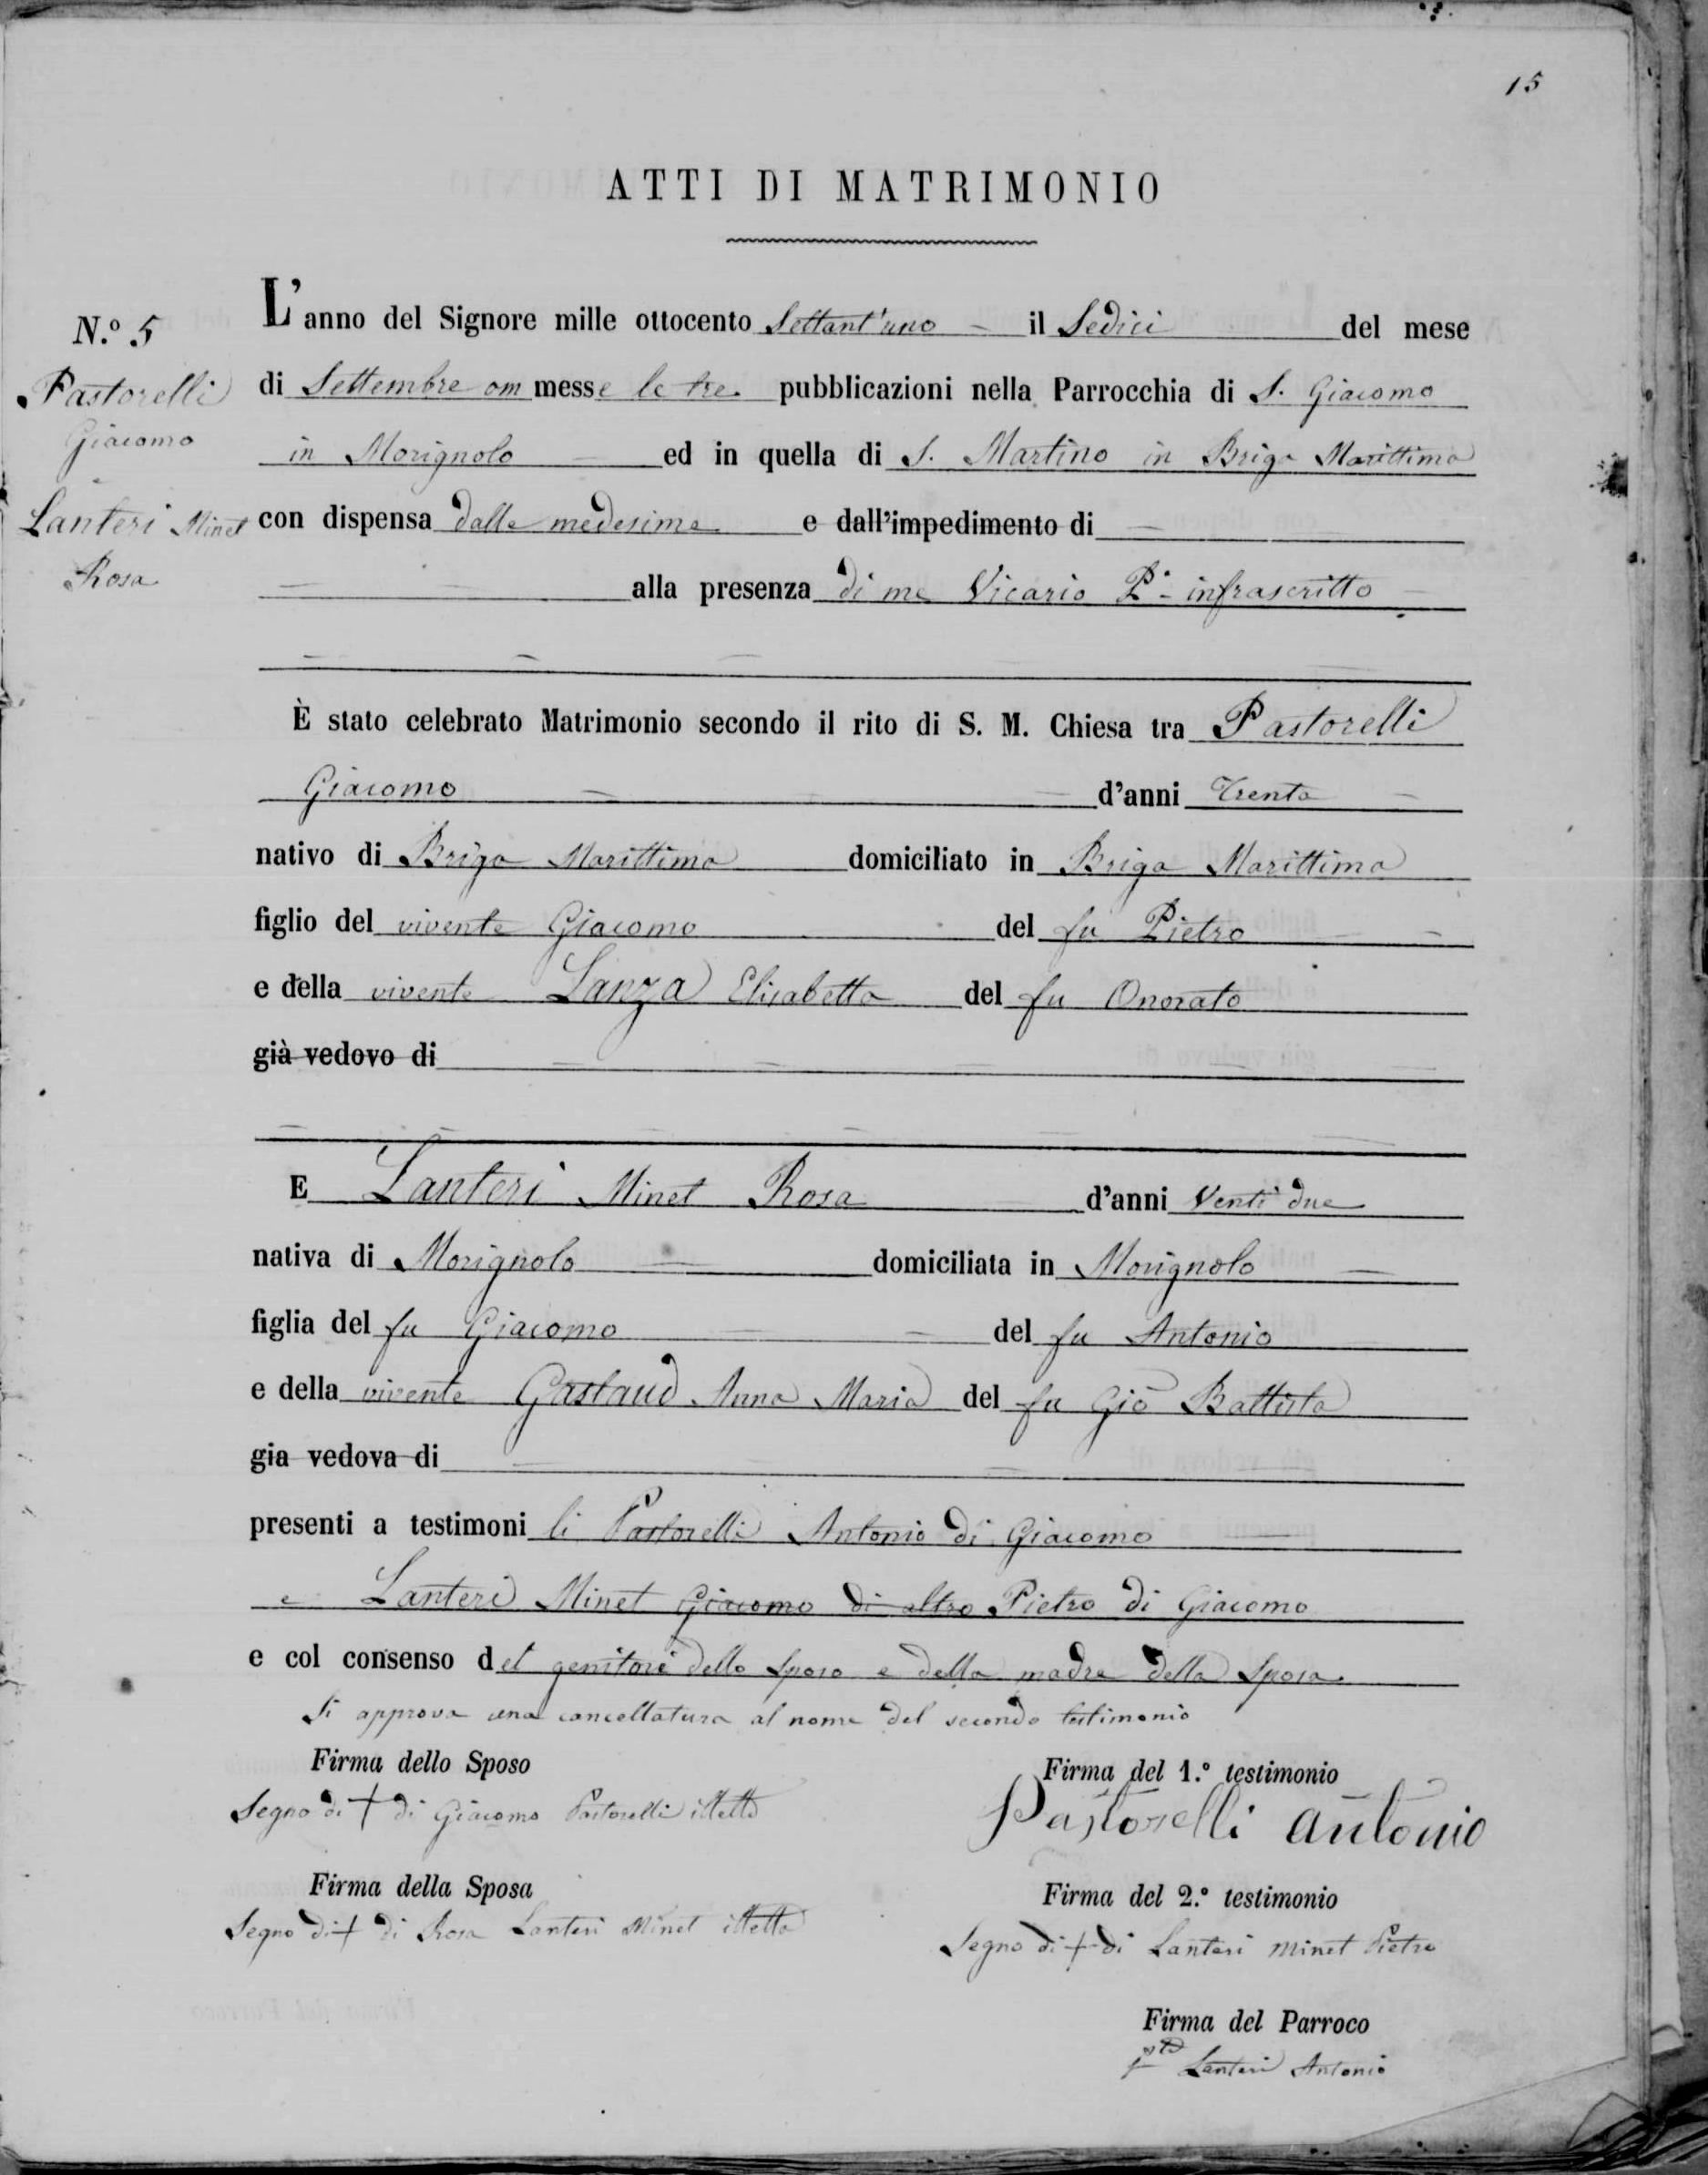 15
ATTI DI MATRIMONIO
N.º 5
Pastorelli
Giacomo
Lanteri Minet
Rosa
L'anno del Signore mille ottocento Settant'uno il Sedici del mese
di Settembre om messe le tre pubblicazioni nella Parrocchia di S. Giacomo
in Morignolo ed in quella di S. Martino in Briga Marittima
con dispensa dalle medesime e dall'impedimento di
alla presenza di me Vicario P. infrascritto
È stato celebrato Matrimonio secondo il rito di S. M. Chiesa tra Pastorelli
Giacomo d'anni Trenta
nativo di Briga Marittima domiciliato in Briga Marittima
figlio del vivente Giacomo del fu Pietro
e della vivente Lanza Elisabetta del fu Onorato
già vedovo di
E Lanteri Minet Rosa d'anni Venti due
nativa di Morignolo domiciliata in Morignolo
figlia del fu Giacomo del fu Antonio
e della vivente Gastaud Anna Maria del fu Gio Battista
gia vedova di
presenti a testimoni li Pastorelli Antonio di Giacomo
e Lanteri Minet Giacomo di altro Pietro di Giacomo
e col consenso del genitore dello sposo e della madre della sposa
Si approva una cancellatura al nome del secondo testimonio
Firma dello Sposo
Segno di + di Giacomo Pastorelli illetto
Firma della Sposa
Segno di + di Rosa Lanteri Minet illetta
Firma del 1.º testimonio
Pastorelli Antonio
Firma del 2.º testimonio
Segno di + di Lanteri Minet Pietro
Firma del Parroco
Lanteri Antonio